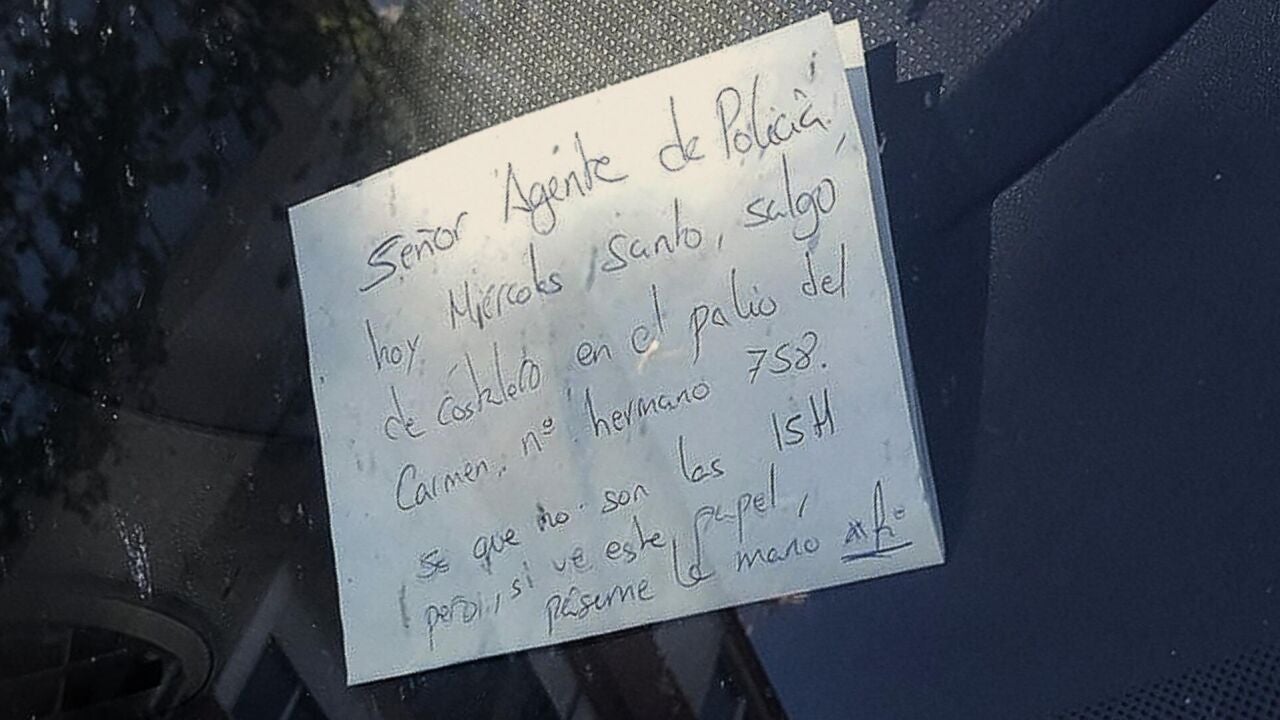 Señor Agente de Policía!
hoy Miércoles Santo, salgo
de costalero en el palio del
Carmen, nº hermano 758.
se que no son las 15H
pero, si ve este papel,
páseme la mano